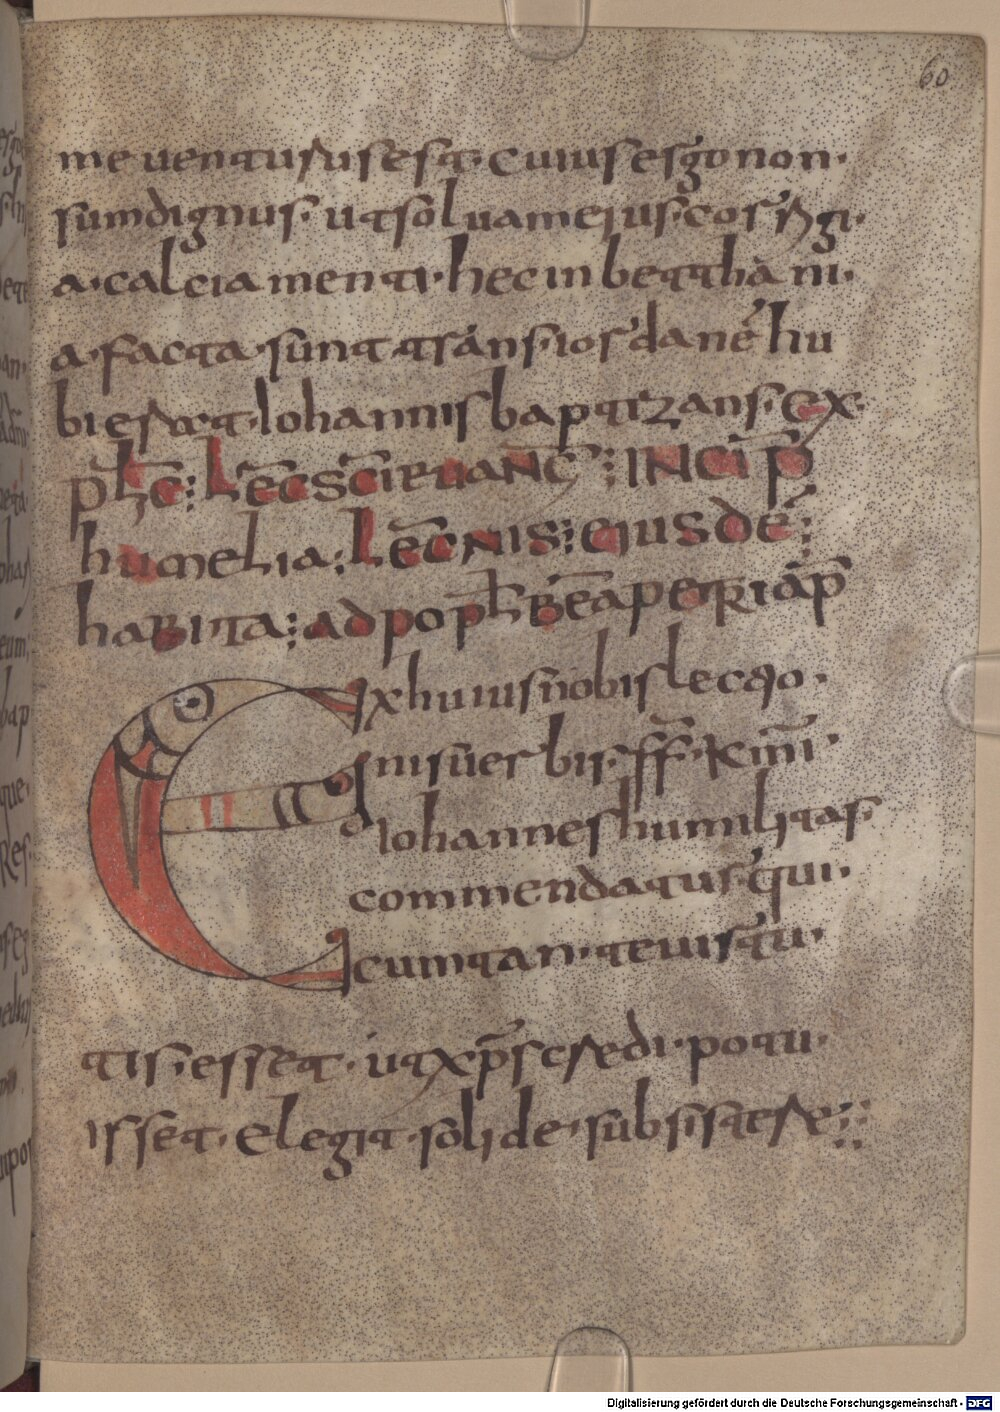 60
me uenturus est· cuius ergo non·
sum dignus· ut soluam ejus· corrigi·
a· calciamenti· hec in betthani·
a· facta· sunt trans· iordanē hu
bi erat· iohannis baptizans· ex
INCIP̄
humelia· eiusdē
habita· ad beā petri ap̄
Ex huius nobis lectio·
nis uerbis· ff̄· k̄mi·
iohannes humilitas·
commendatus· qui·
cum tan· te uirtu·
tis· esset· ut xp̄s credi· potu·
isset· elegit· solide· subsistere
Digitalisierung gefördert durch die Deutsche Forschungsgemeinschaft - DFG